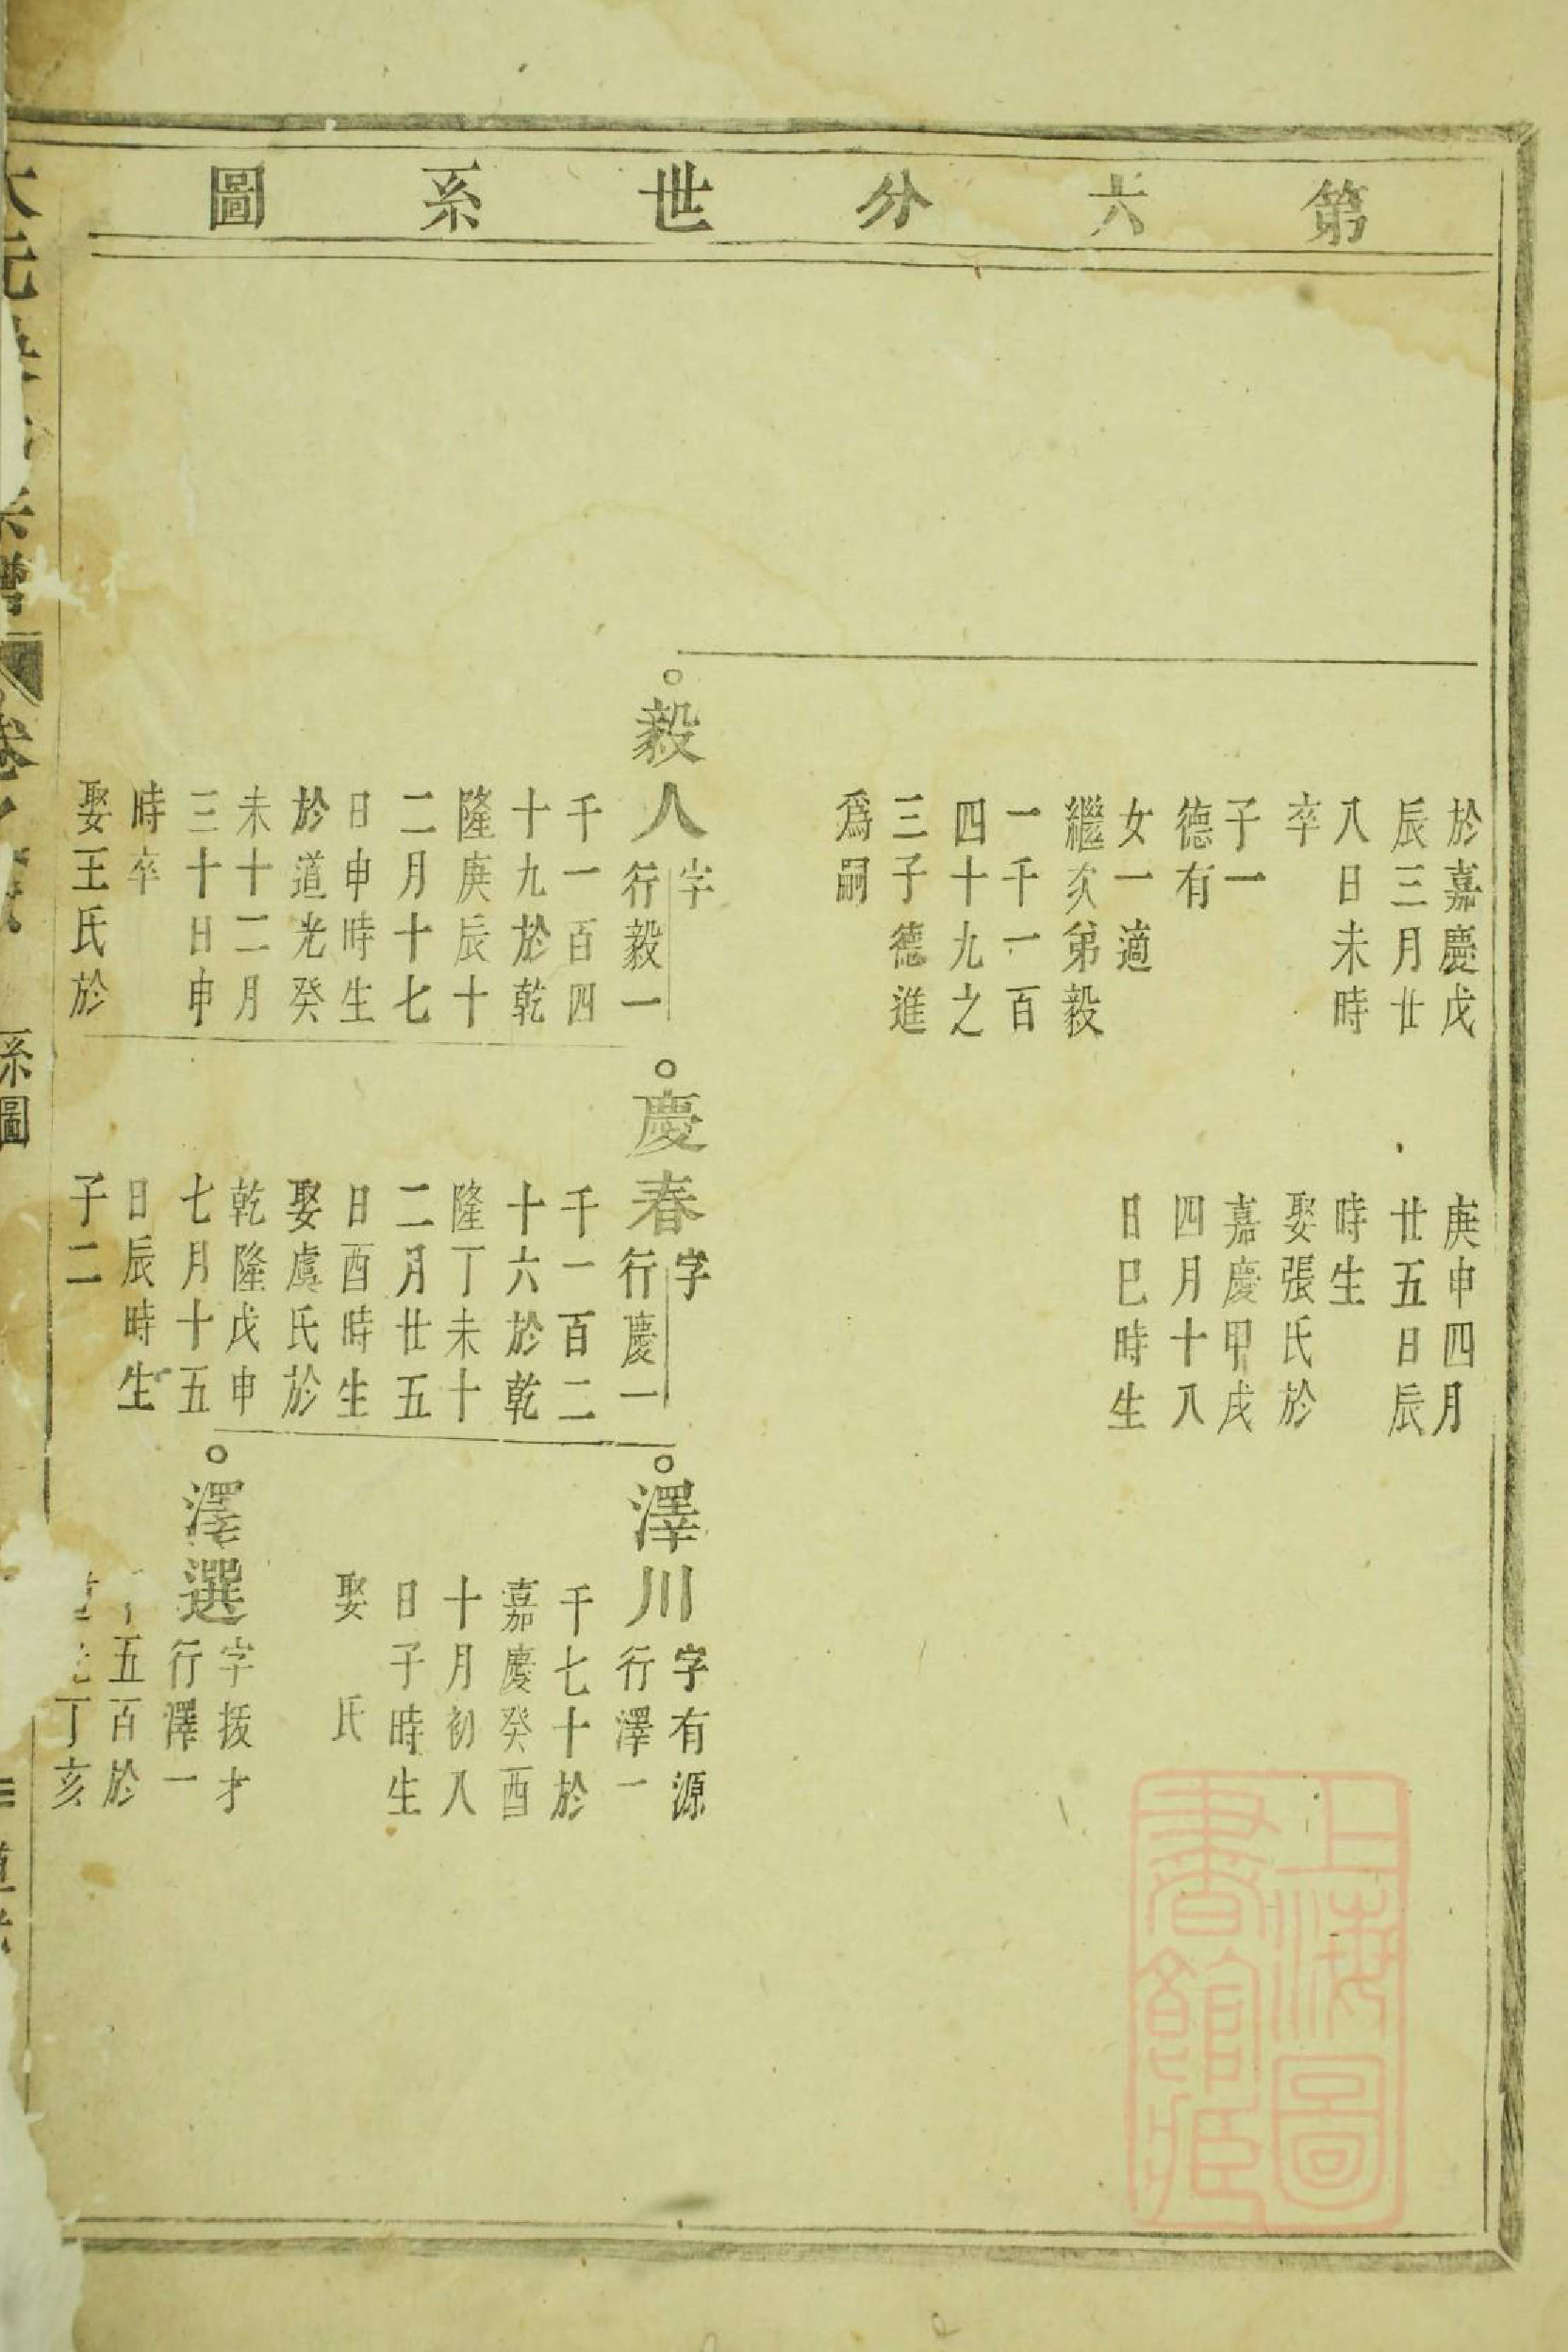 第六分世系圖
於嘉慶戊
辰三月廿
八日未時
卒
子一
德有
女一適
繼次弟毅
一千一百
四十九之
三子德進
爲嗣
庚申四月
廿五日辰
時生
娶張氏於
嘉慶甲戌
四月十八
日巳時生
毅人
字
行毅一
千一百四
十九於乾
隆庚辰十
二月十七
日申時生
於道光癸
未十二月
三十日申
時卒
娶王氏於
慶春
字
行慶一
千一百二
十六於乾
隆丁未十
二月廿五
日酉時生
娶虞氏於
乾隆戊申
七月十五
日辰時生
子二
澤川
字有源
行澤一
千七十於
嘉慶癸酉
十月初八
日子時生
娶 氏
澤選
字拔才
行澤一
五百於
丁亥
卷
系圖
上海圖
書館藏